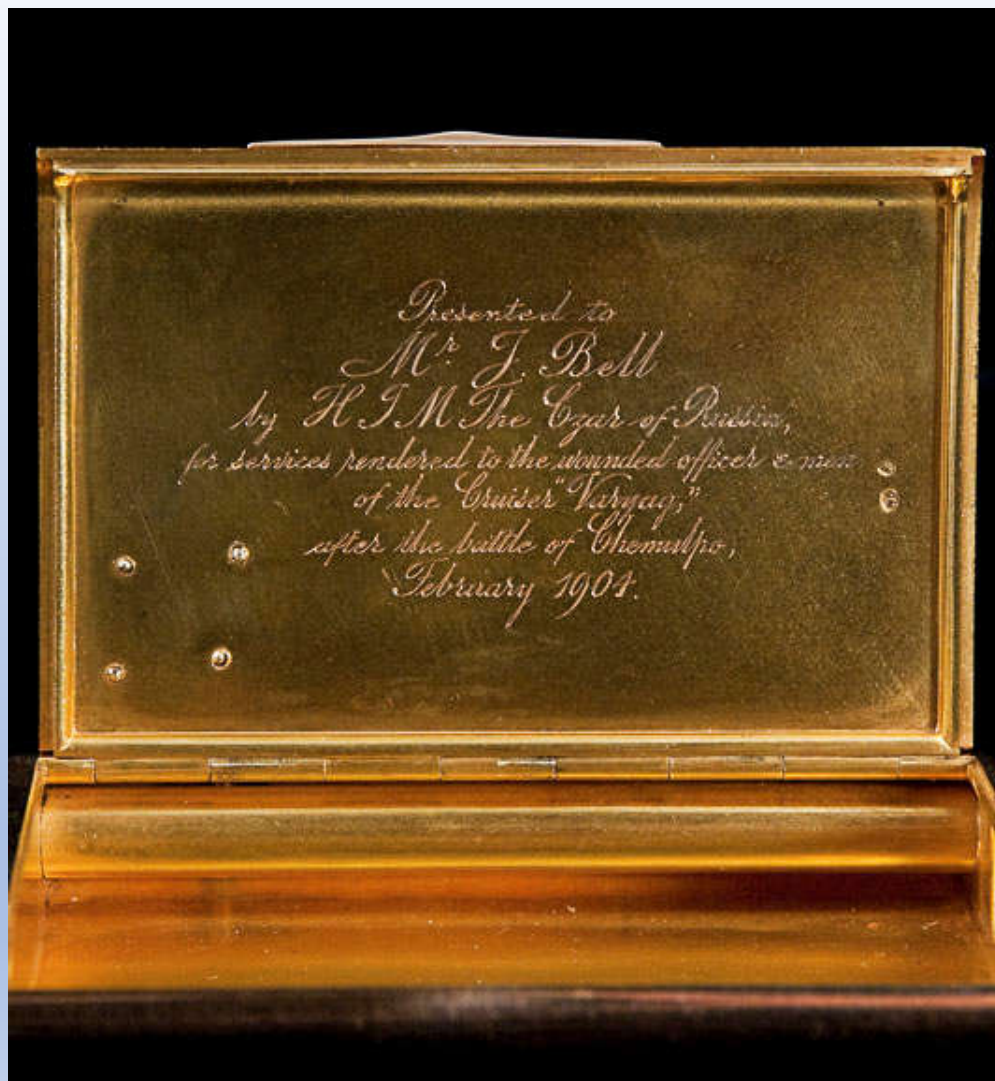 Presented to
Mr. J. Bell
by H I M The Czar of Russia,
for services rendered to the wounded officer & men
of the Cruiser "Varyag,"
after the battle of Chemulpo,
February 1904.